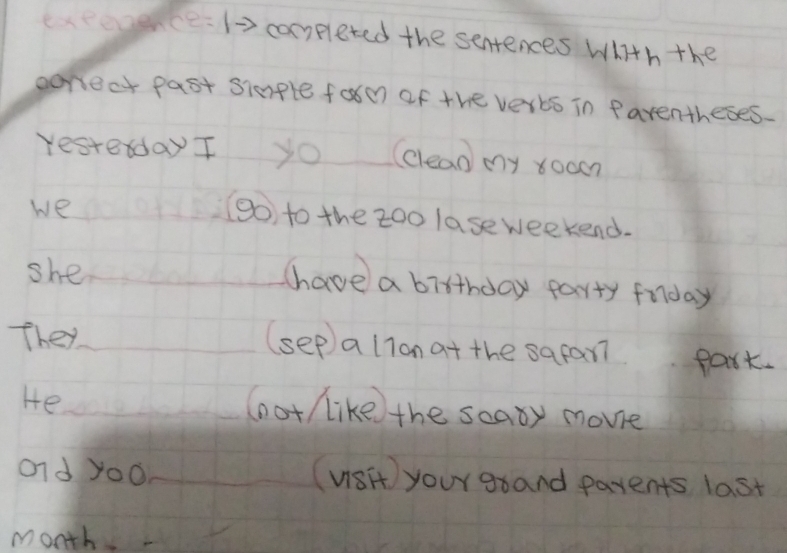 experience: 1→ completed the sentences whith the
correct past simple form of the verbs in parentheses-
Yesterday I yo (clean) my room
we (go) to the zoo lase weekend-
she (have) a birthday party friday
They (see) a lion at the safari park.
He (not/like) the scary movie
Did you (visit) your grand parents last
month. -